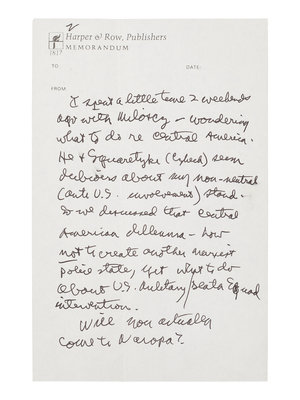 2
Harper & Row, Publishers
1817 MEMORANDUM
TO DATE:
FROM
I spent a little time 2 weekends
ago with Milosz — wondering
what to do re Central America.
He & (Czech) seem
dubious about my non-neutral
(anti U.S. involvement) stand.
So we discussed that Central
American dilemma — how
not to create another marxist
police state, yet what to do
about U.S. military/death squad
intervention.
Will you actually
come to Naropa?